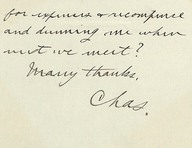 for expenses & recompense
and dunning me when
next we meet?
Many thanks.
Chas.